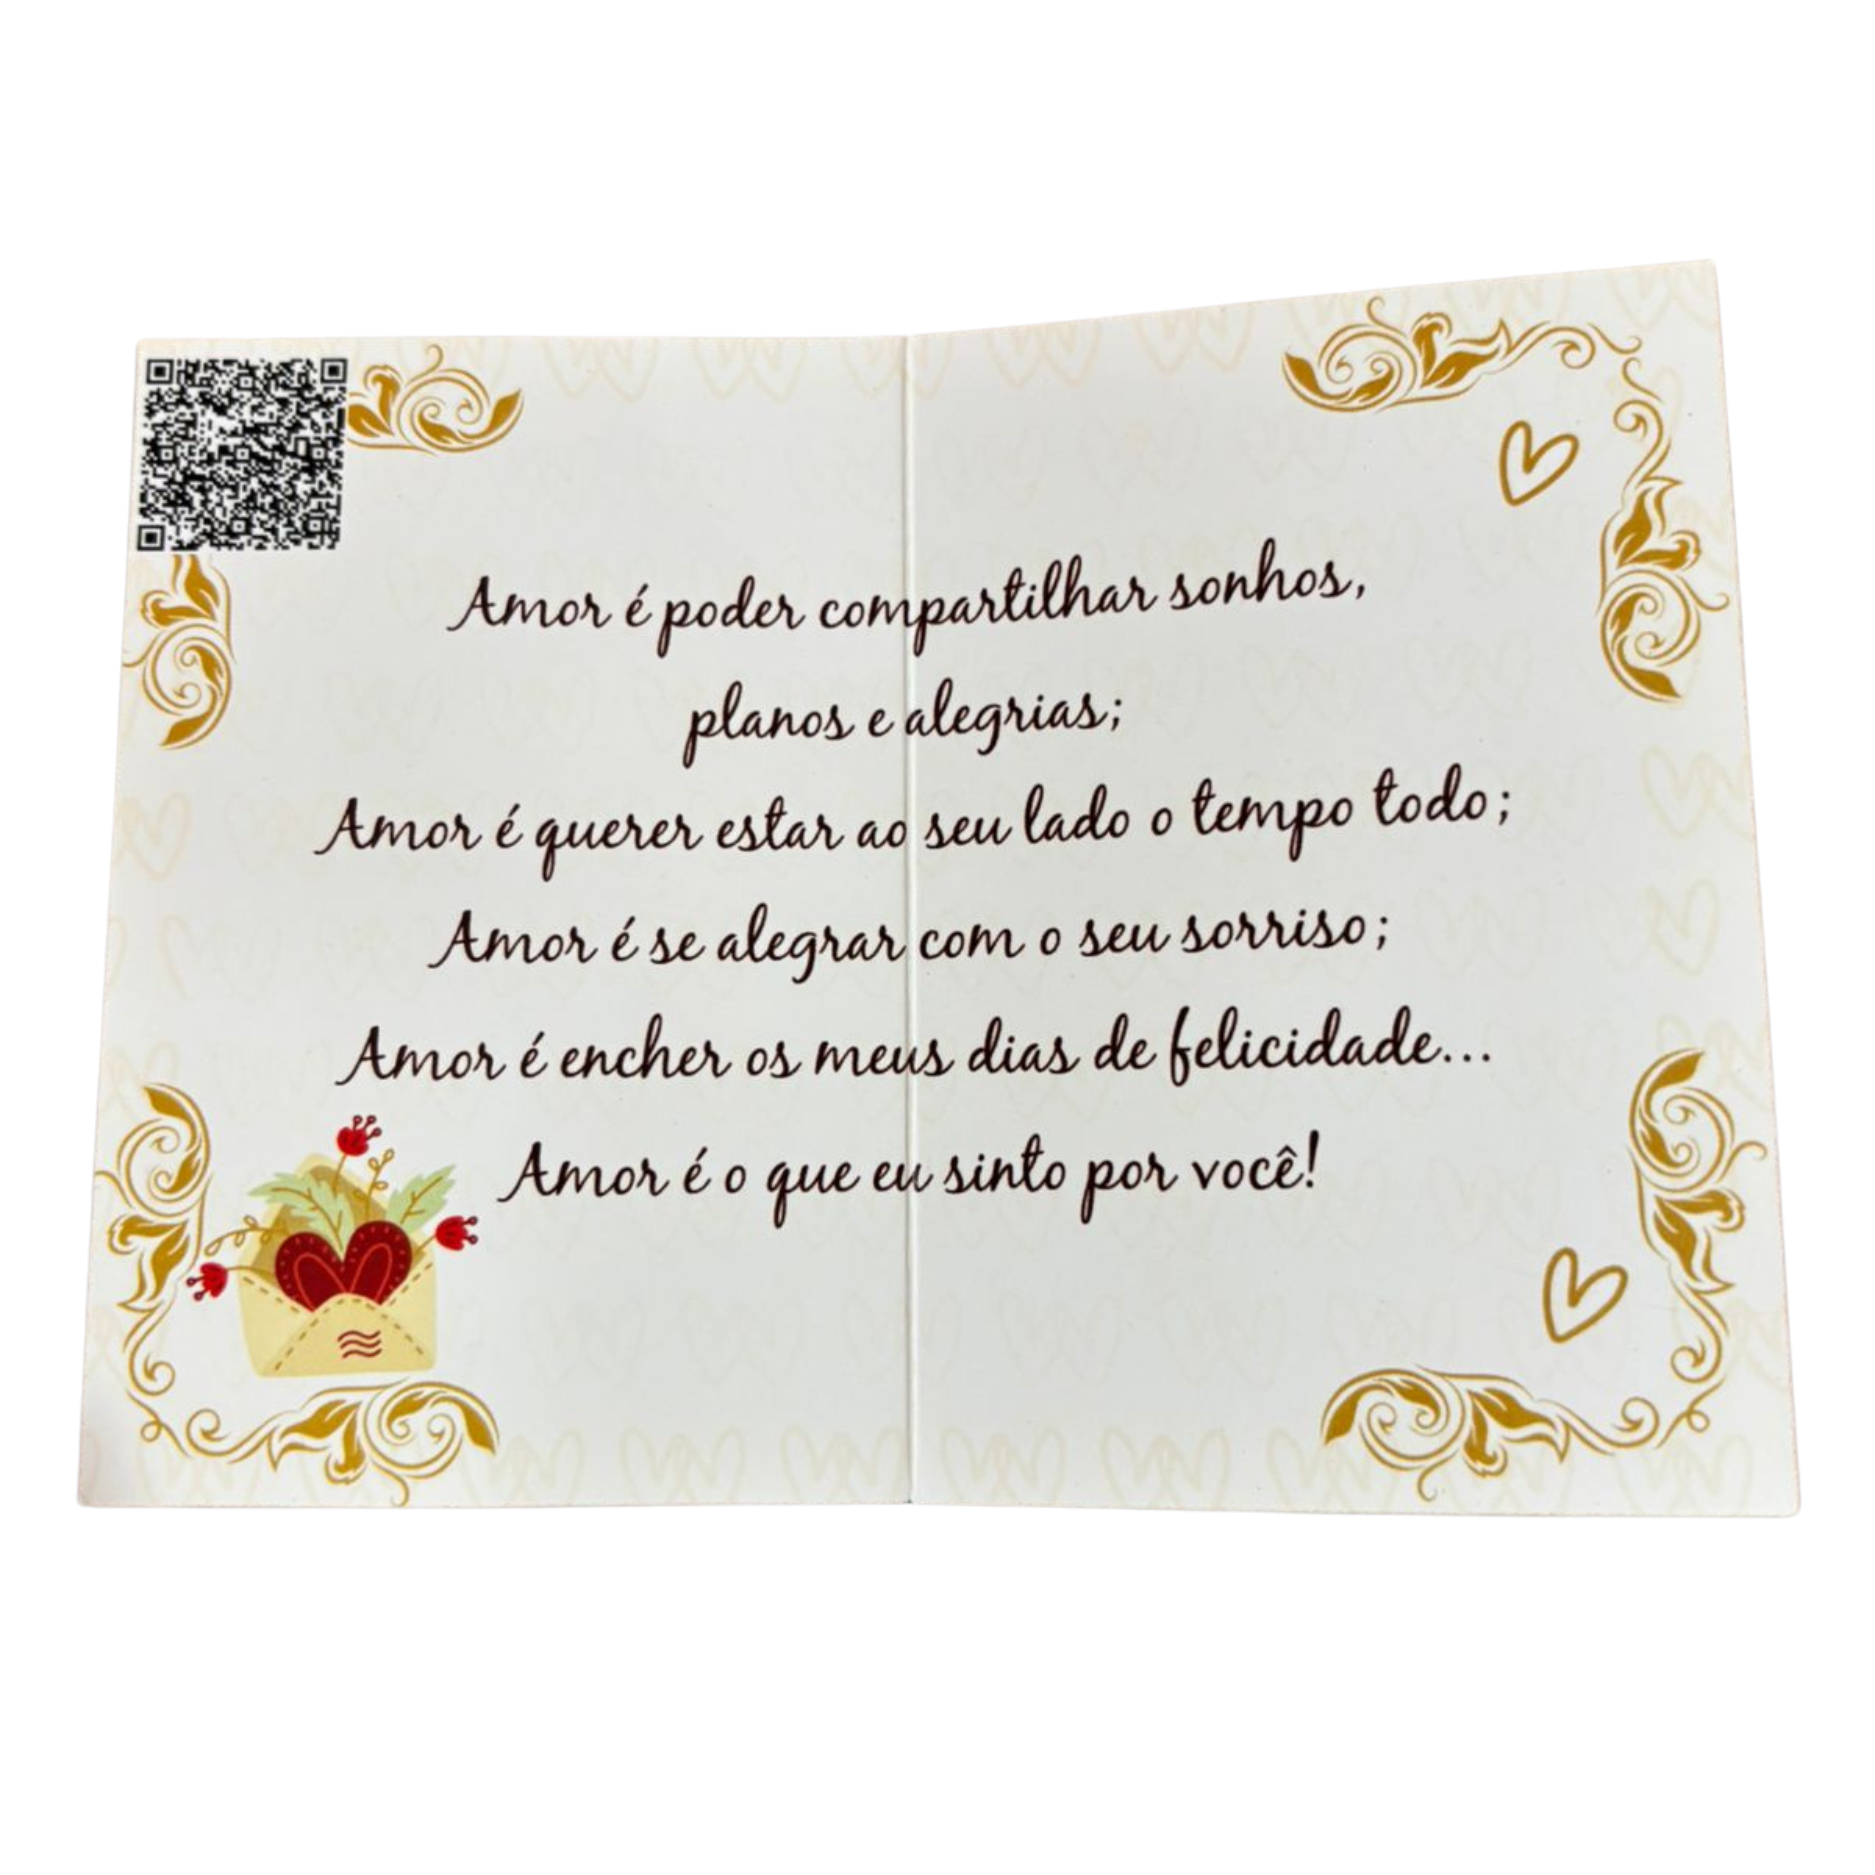 Amor é poder compartilhar sonhos,
planos e alegrias;
Amor é querer estar ao seu lado o tempo todo;
Amor é se alegrar com o seu sorriso;
Amor é encher os meus dias de felicidade...
Amor é o que eu sinto por você!